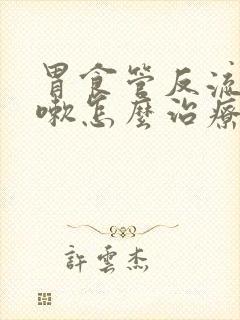 胃食管反流
嗽怎麼治療
許雲杰